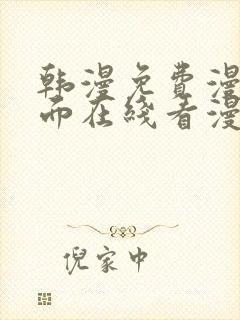 韩漫免费漫
而在线看漫
倪家中